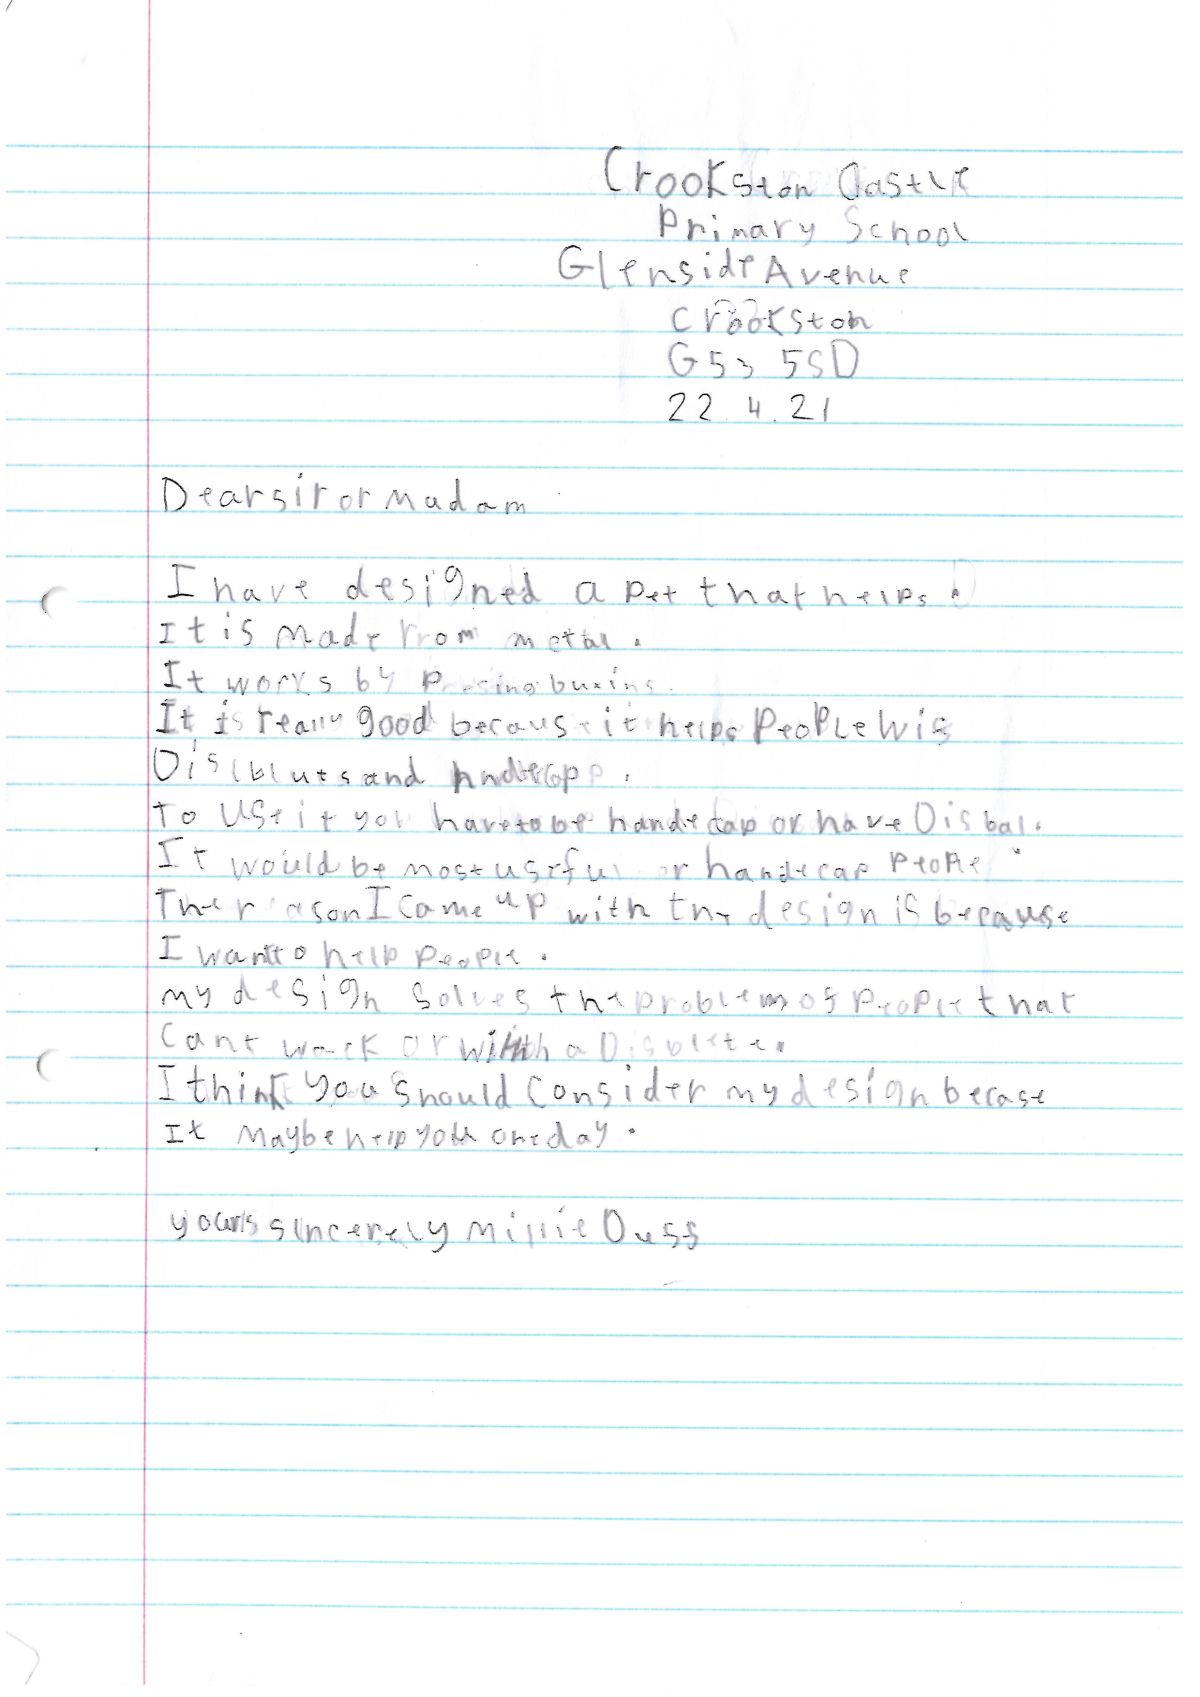 Crookston Castle
Primary School
Glenside Avenue
Crookston
G53 5SD
22.4.21
Dear sir or Madam
I have designed a pet that helps.
It is made from metal.
It works by
It is really good because it helps people wis
and
To use it you have to be handecap or have Disbal.
It would be most useful or handecap people
The reason I came up with the design is because
I want to help people.
my design solves the problem of people that
cant wack or with a
I think you should consider my design becase
It maybe help you one day.
yours sincerely Millie Duss